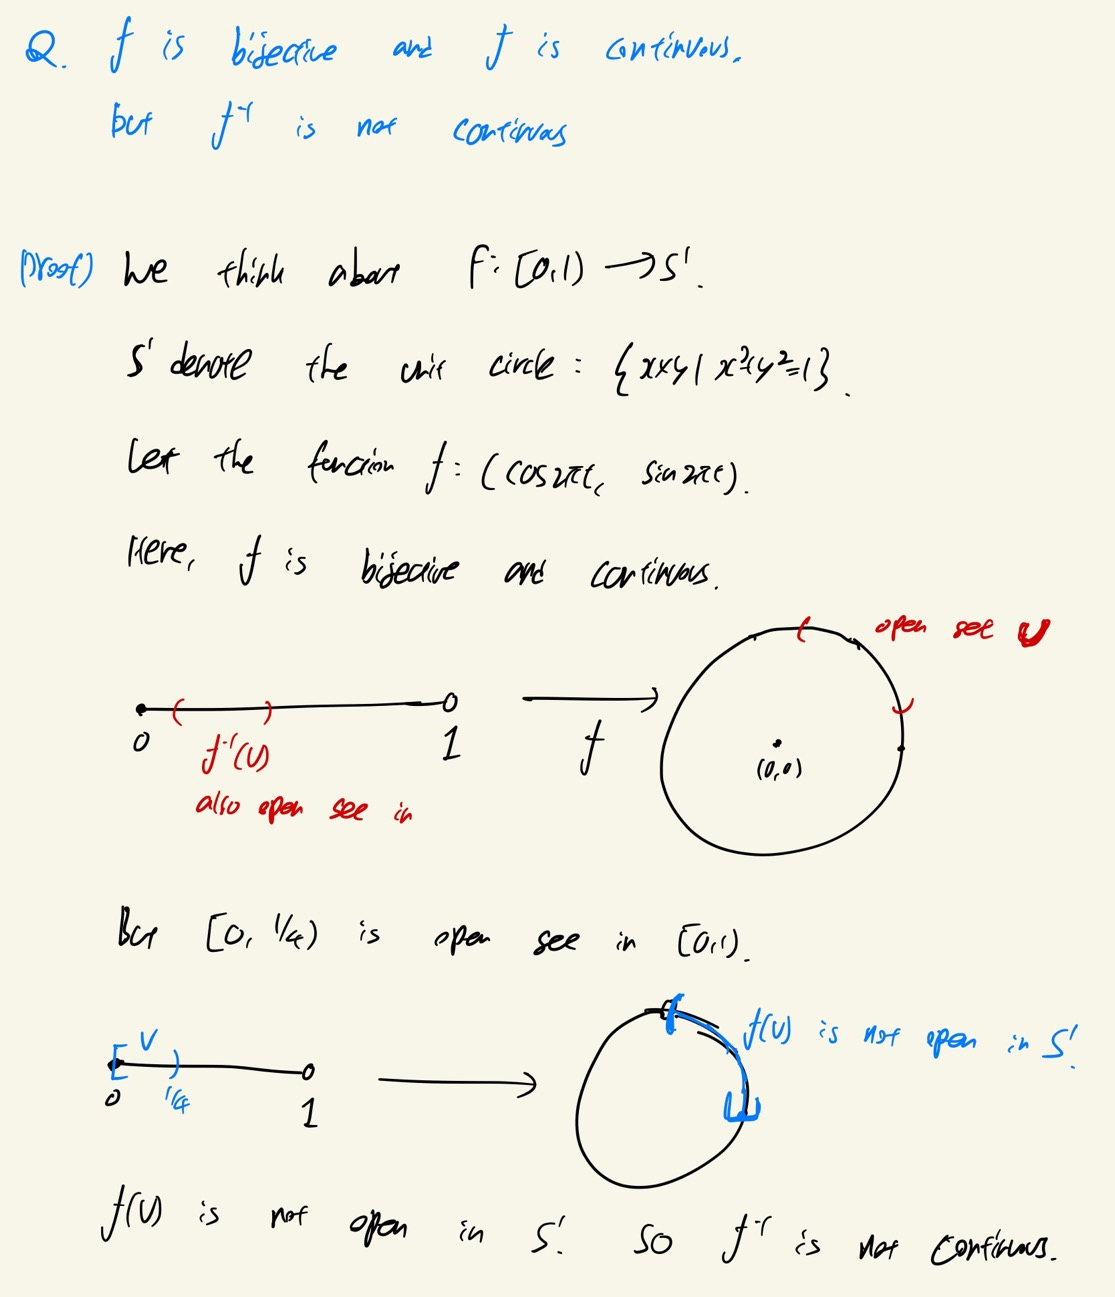 Q. f is bijective and f is continuous.
but f⁻¹ is not continuous
(proof) We think about f: [0,1) → S¹.
S¹ denote the unit circle : {x×y | x²+y²=1}.
Let the function f : (cos2πt, sin2πt).
Here, f is bijective and continuous.
open set U
0
1
f
(0,0)
f⁻¹(U)
also open set in
But [0, 1/4) is open set in [0,1).
U
0
1/4
1
f(U) is not open in S¹.
f(U) is not open in S¹. So f⁻¹ is not continuous.